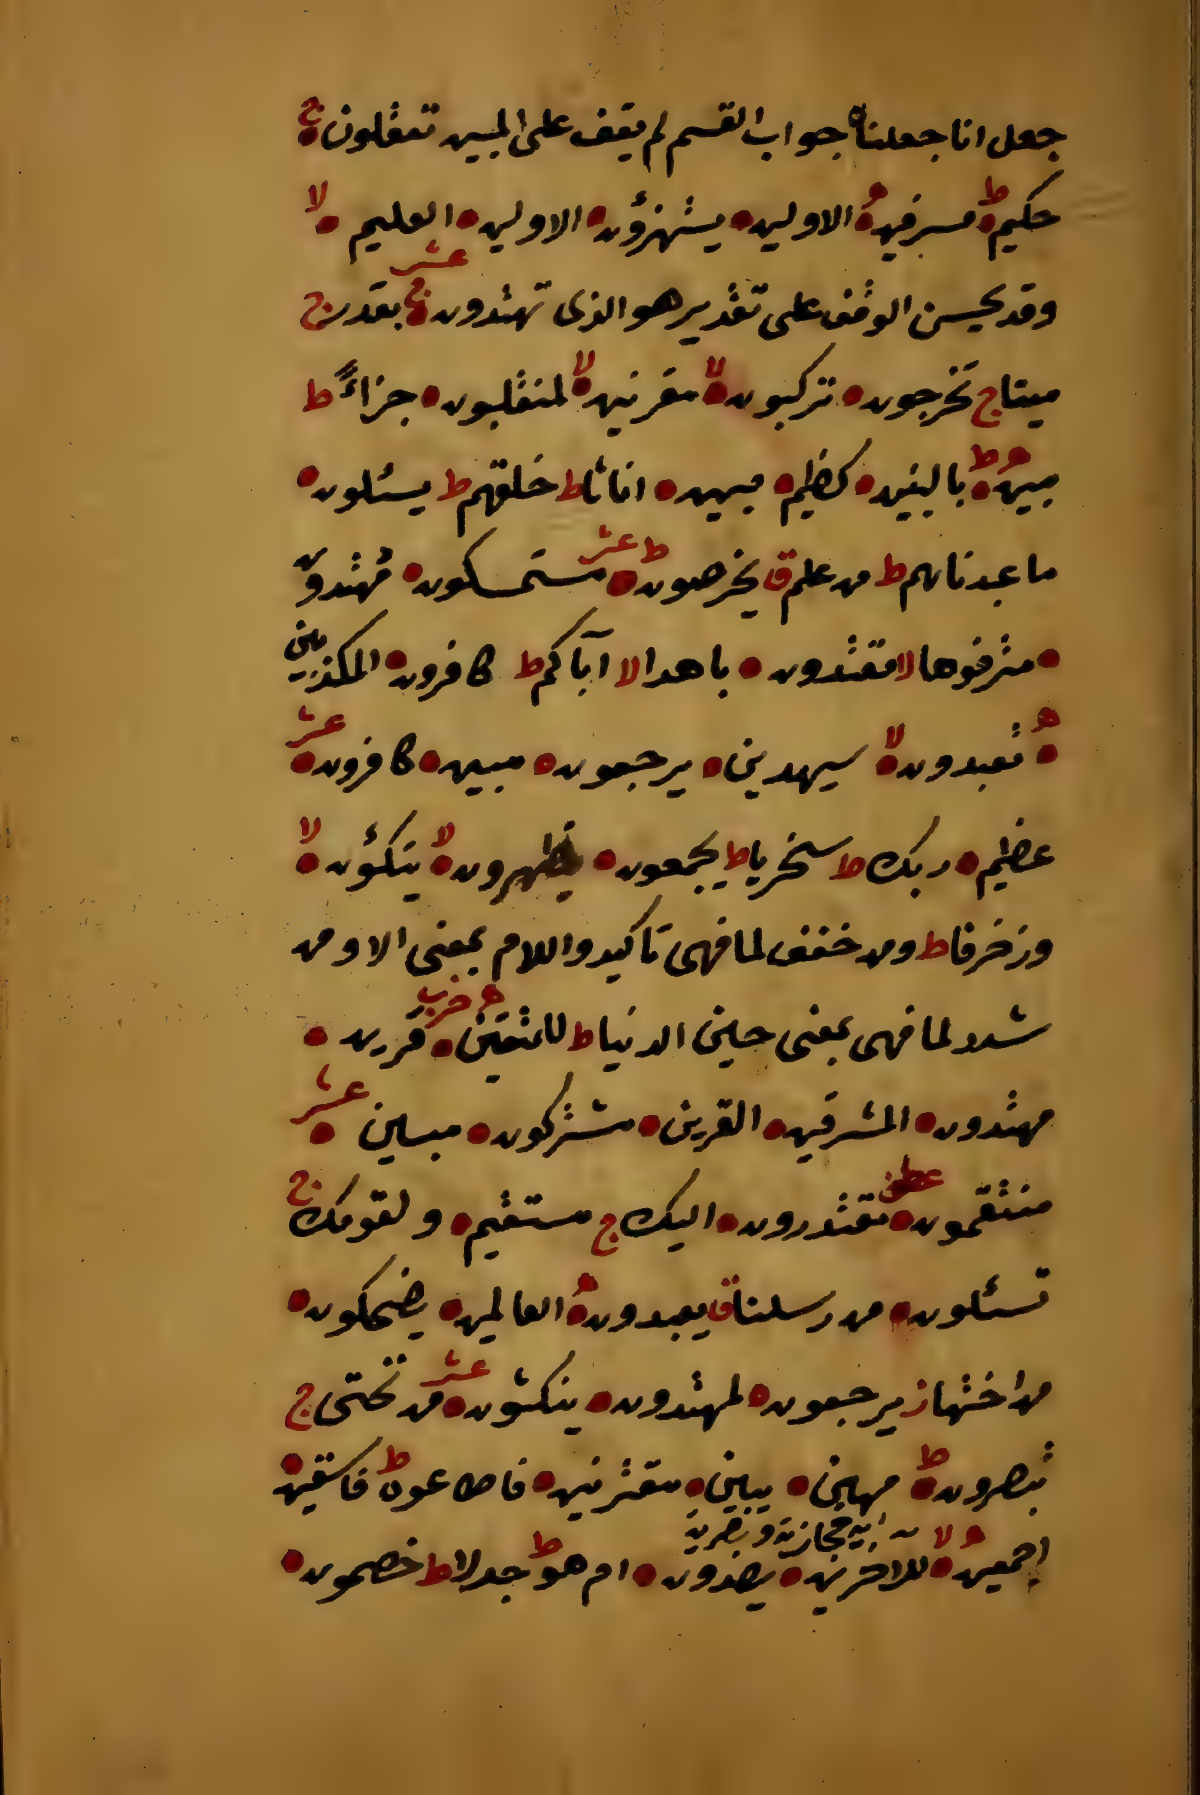 جعل انا جعلناه جواب القسم لم يقف على المبين تعقلون ج
حكيم ط مسرفين ه الاولين يستهزؤن الاولين العليم لا
وقد يحسن الوقف على تقدير هو الذى تهتدون ج عشر بقدر ج
ميتا ج تخرجون تركبون لا مقرنين لا لمنقلبون جزاءً ط
مبين ه ط بالبنين كظيم مبين اناثا ط خلقهم ط يسئلون
ما عبدناهم ط من علم ق يخرصون ط عشر مستمسكون مهتدون
مترفوها لا مقتدون باهدا لا اآباكم ط كافرون المكذبين
ه تعبدون لا سيهدين يرجعون مبين كافرون عشر
عظيم ربك ط سخريا ط يجمعون يظهرون لا يتكؤن لا
وزخرفا ط ومن خفف لما فهى تاكيد واللام بمعنى الا ومن
شدد لما فهى بمعنى حين الدنيا ط للمتقين ه حزب قرين
مهتدون المشرقين القرين مشتركون مبين عشر
منتقمون عطف مقتدرون اليك ج مستقيم ولقومك ج
تسئلون من رسلنا ق يعبدون ه العالمين يضحكون
من اختها ز يرجعون لمهتدون ينكثون عشر من تحتى ج
تبصرون ط مهين يبين مقترنين فاطاعوه ط فاسقين
اجمعين لا ه للآخرين يصدون ام هو ط جدلا ط خصمون
اية حجازية وبصرية